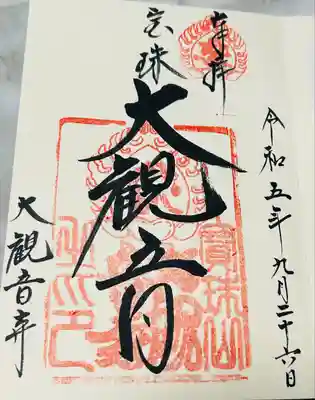 奉拝
令和五年九月二十六日
宝珠
大観音
大観音寺
寳珠山